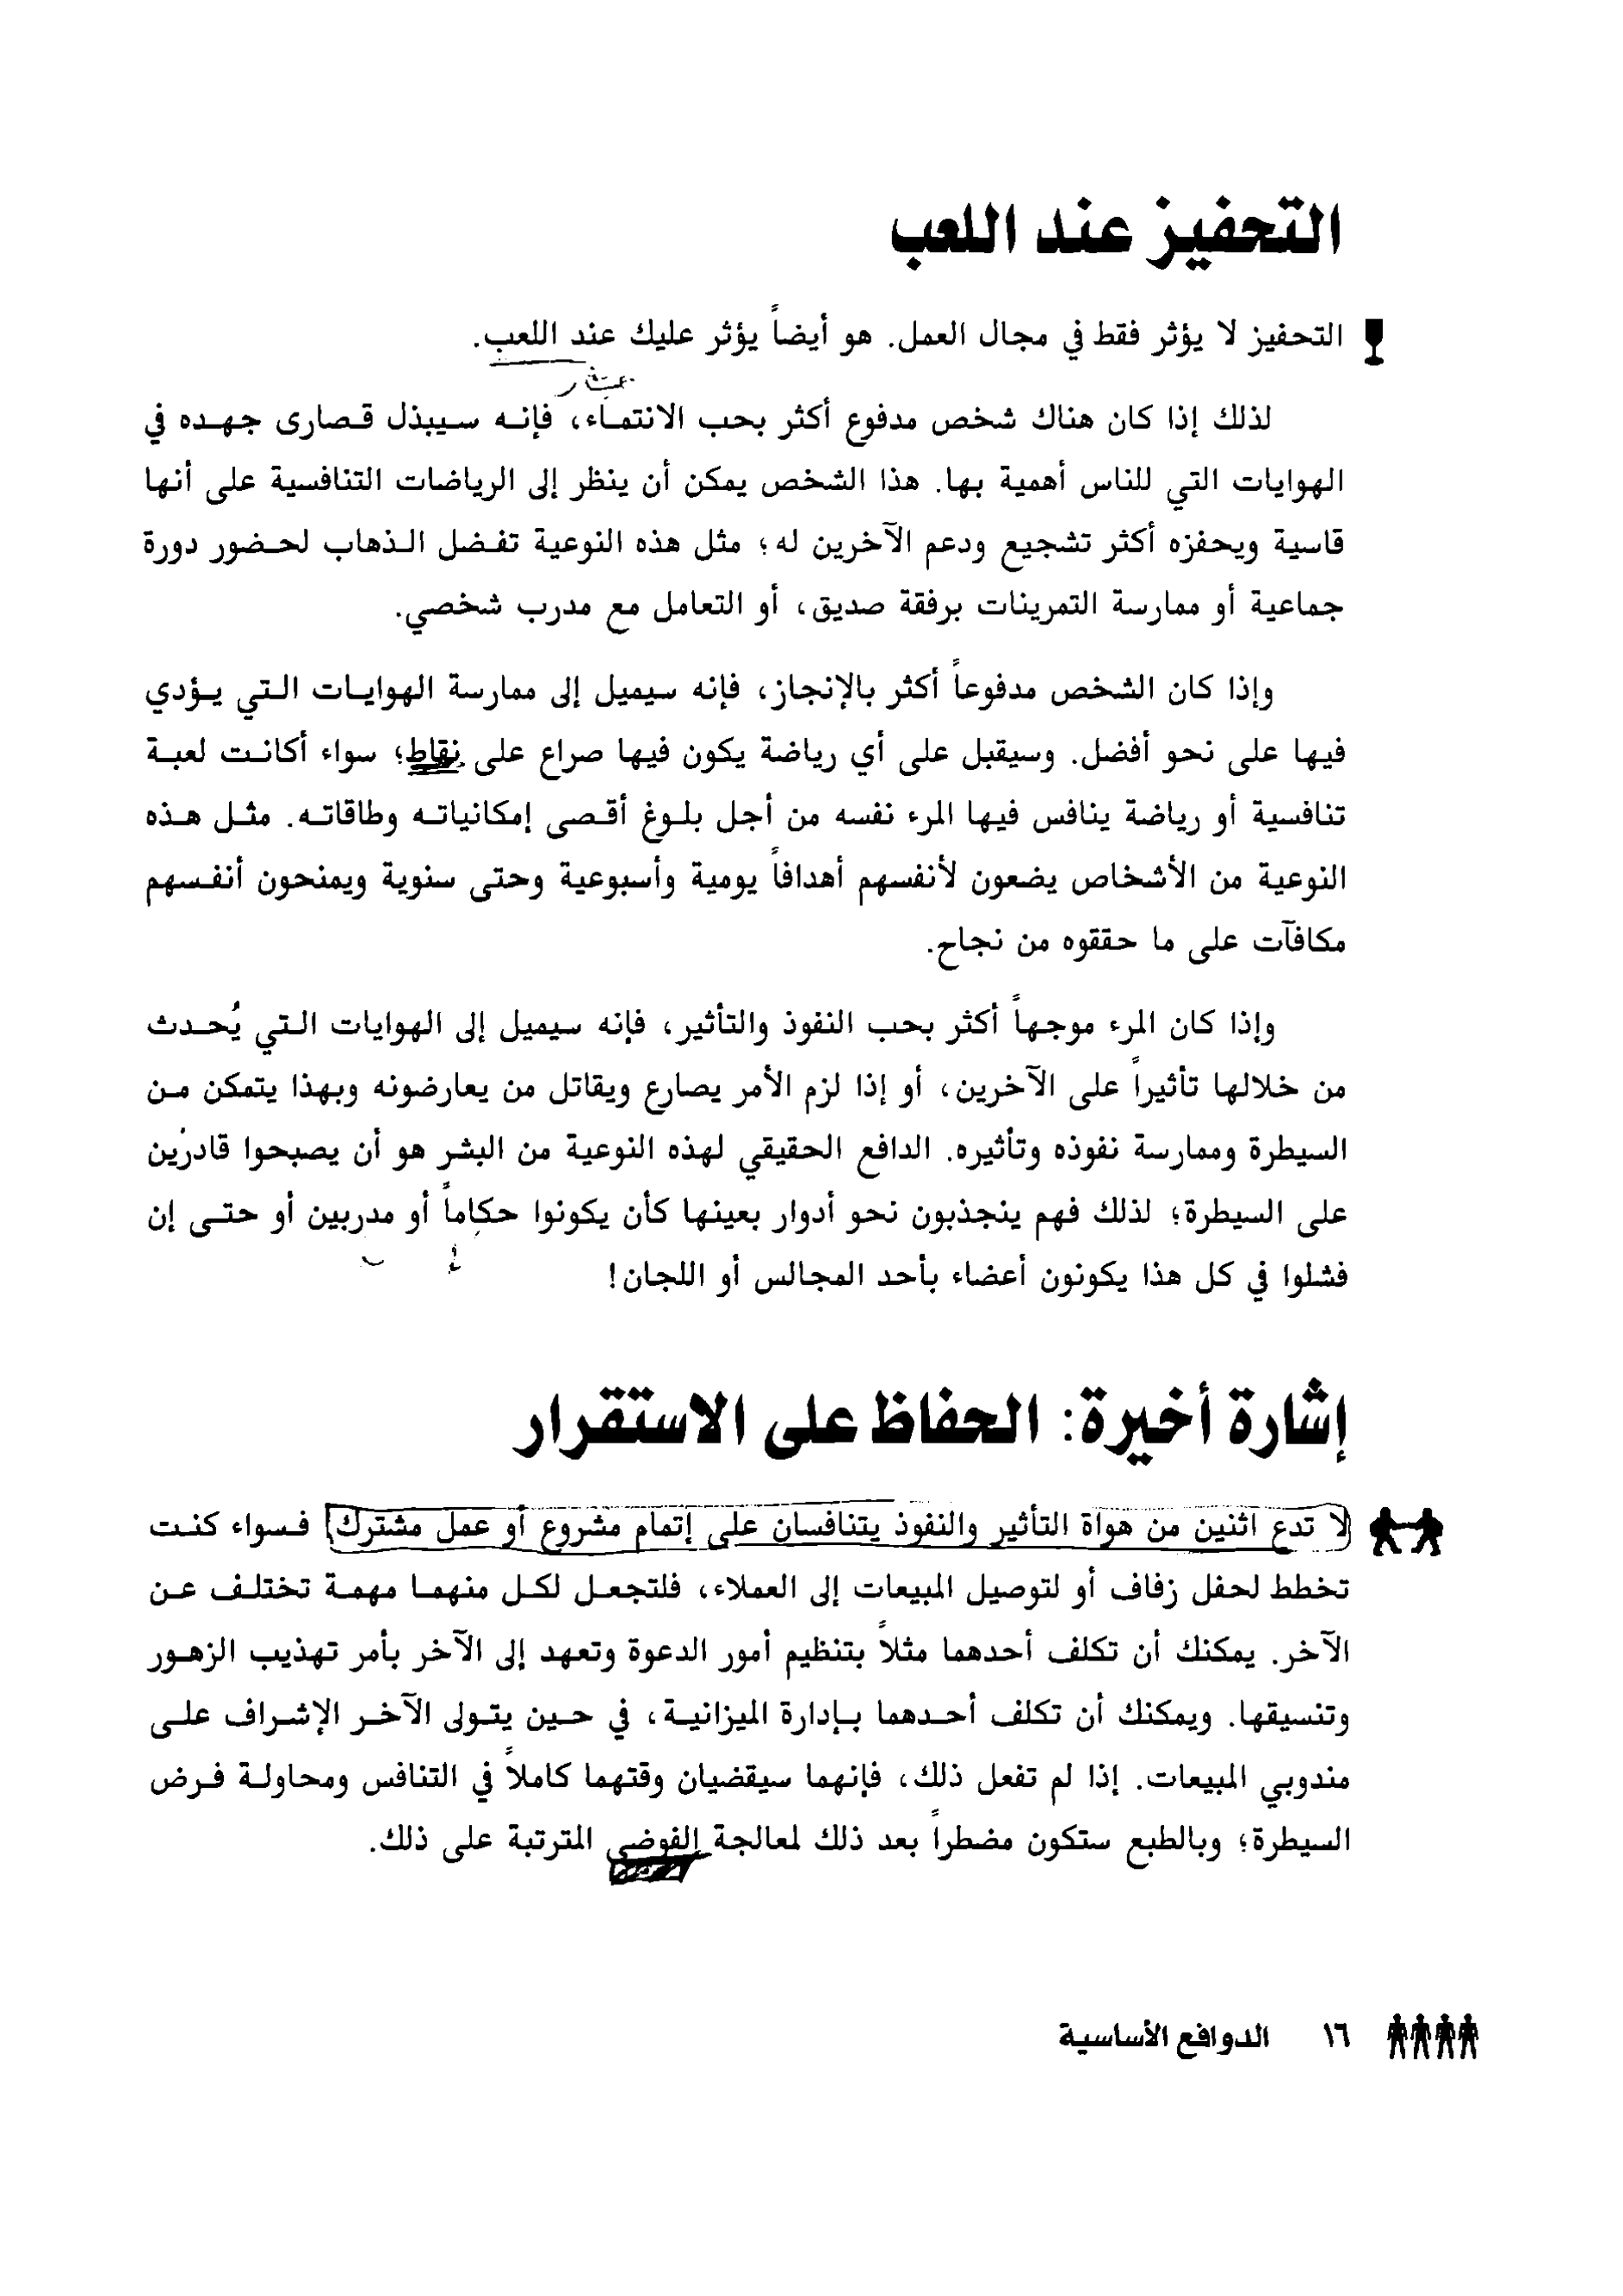 التحفيز عند اللعب
التحفيز لا يؤثر فقط في مجال العمل. هو أيضاً يؤثر عليك عند اللعب.
لذلك إذا كان هناك شخص مدفوع أكثر بحب الانتماء، فإنه سيبذل قصارى جهده في
الهوايات التي للناس أهمية بها. هذا الشخص يمكن أن ينظر إلى الرياضات التنافسية على أنها
قاسية ويحفزه أكثر تشجيع ودعم الآخرين له؛ مثل هذه النوعية تفضل الذهاب لحضور دورة
جماعية أو ممارسة التمرينات برفقة صديق، أو التعامل مع مدرب شخصي.
وإذا كان الشخص مدفوعاً أكثر بالإنجاز، فإنه سيميل إلى ممارسة الهوايات التي يؤدي
فيها على نحو أفضل. وسيقبل على أي رياضة يكون فيها صراع على نقاط؛ سواء أكانت لعبة
تنافسية أو رياضة ينافس فيها المرء نفسه من أجل بلوغ أقصى إمكانياته وطاقاته. مثل هذه
النوعية من الأشخاص يضعون لأنفسهم أهدافاً يومية وأسبوعية وحتى سنوية ويمنحون أنفسهم
مكافآت على ما حققوه من نجاح.
وإذا كان المرء موجهاً أكثر بحب النفوذ والتأثير، فإنه سيميل إلى الهوايات التي يُحدث
من خلالها تأثيراً على الآخرين، أو إذا لزم الأمر يصارع ويقاتل من يعارضونه وبهذا يتمكن من
السيطرة وممارسة نفوذه وتأثيره. الدافع الحقيقي لهذه النوعية من البشر هو أن يصبحوا قادرين
على السيطرة؛ لذلك فهم ينجذبون نحو أدوار بعينها كأن يكونوا حكاماً أو مدربين أو حتى إن
فشلوا في كل هذا يكونون أعضاء بأحد المجالس أو اللجان!
إشارة أخيرة: الحفاظ على الاستقرار
لا تدع اثنين من هواة التأثير والنفوذ يتنافسان على إتمام مشروع أو عمل مشترك فسواء كنت
تخطط لحفل زفاف أو لتوصيل المبيعات إلى العملاء، فلتجعل لكل منهما مهمة تختلف عن
الآخر. يمكنك أن تكلف أحدهما مثلاً بتنظيم أمور الدعوة وتعهد إلى الآخر بأمر تهذيب الزهور
وتنسيقها. ويمكنك أن تكلف أحدهما بإدارة الميزانية، في حين يتولى الآخر الإشراف على
مندوبي المبيعات. إذا لم تفعل ذلك، فإنهما سيقضيان وقتهما كاملاً في التنافس ومحاولة فرض
السيطرة؛ وبالطبع ستكون مضطراً بعد ذلك لمعالجة الفوضى المترتبة على ذلك.
١٦ الدوافع الأساسية